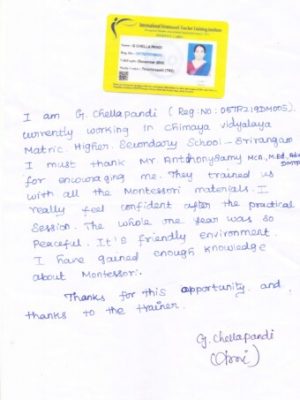 International Montessori Teacher Training Institute
Name : G.CHELLA PANDI
I am G. Chellapandi (Reg. No:
currently working in Chimaya Vidyalaya
Matric. Higher. Secondary School - Srirangam
I must thank Mr Antohonysamy MCA, M.Ed,
for encouraging me. They trained us
with all the Montessori materials. I
really feel confident after the practical
Session. The whole one year was so
Peaceful. It's friendly environment.
I have gained enough knowledge
about Montessori.
Thanks for this opportunity. and
thanks to the trainer.
G. Chellapandi